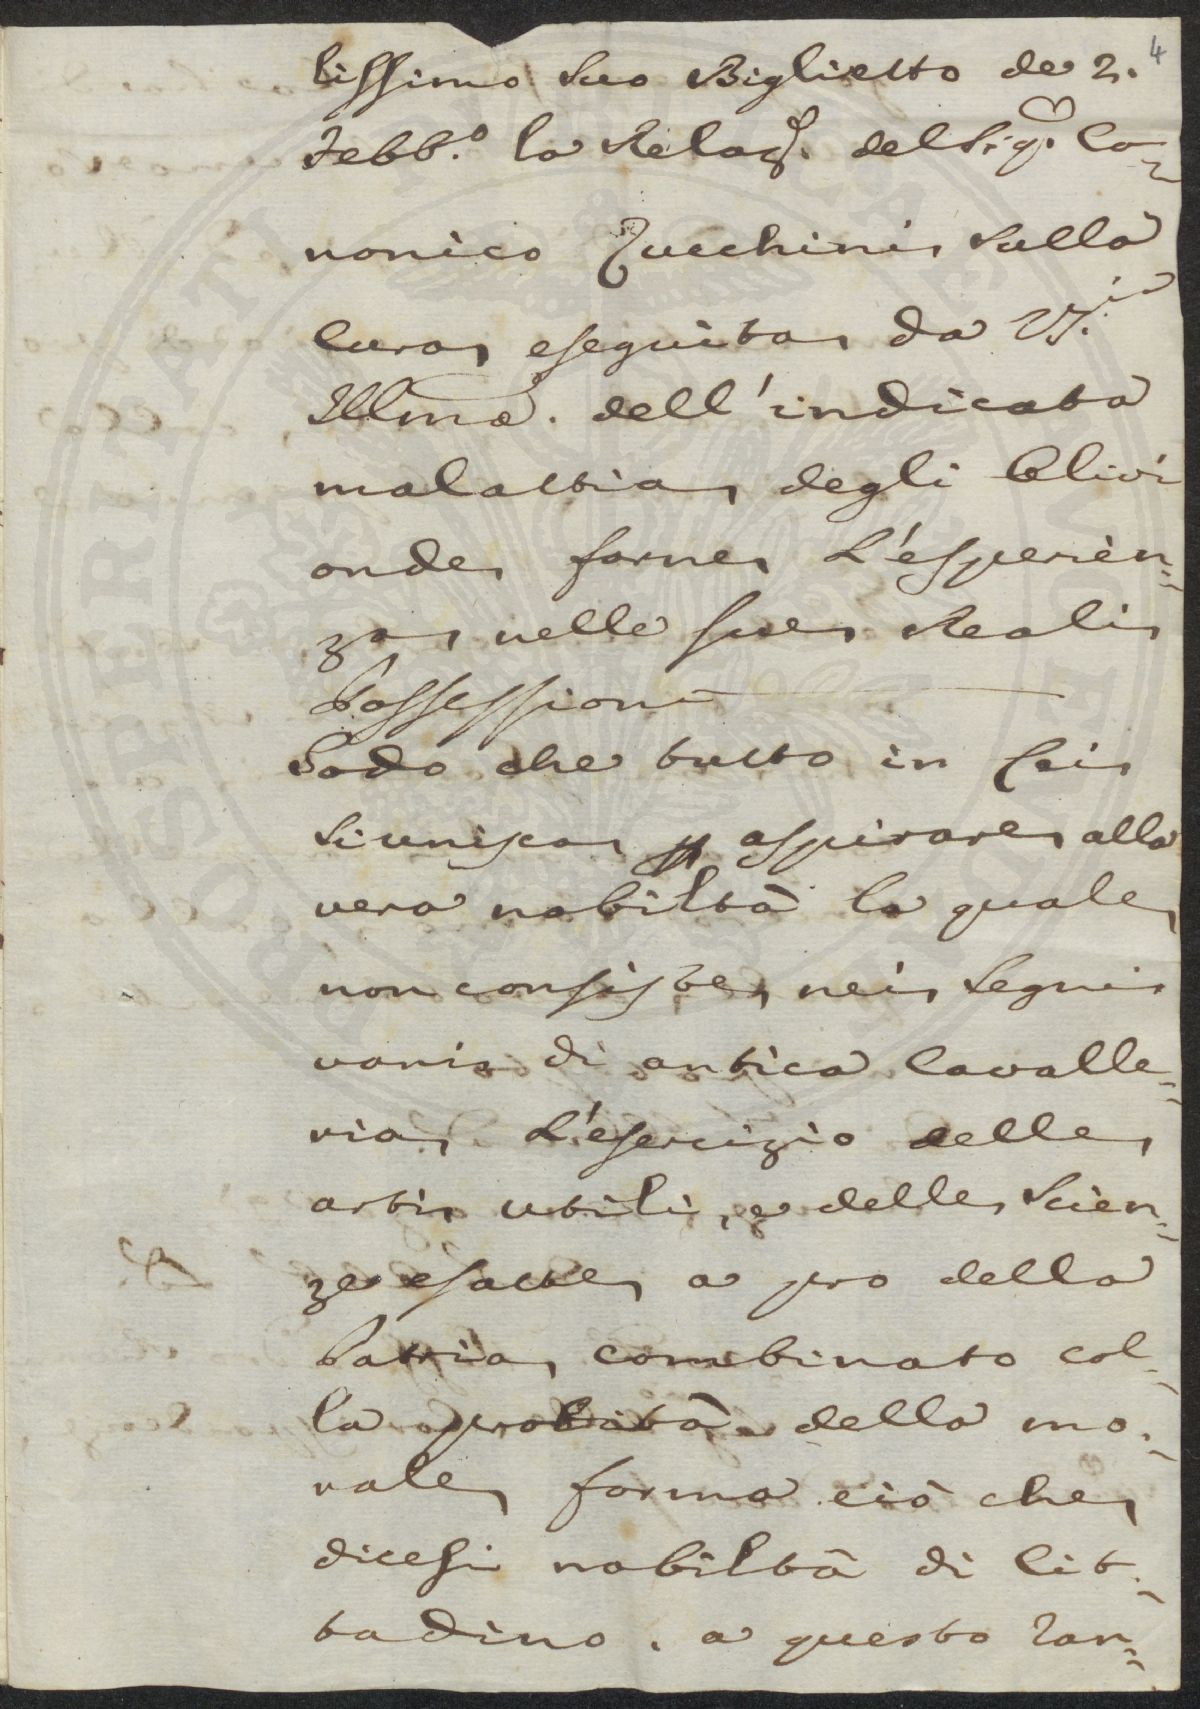 4
lissimo suo Biglietto de 2.
Febb.º la Relaz. del Sig. Ca-
nonico Zucchini sulla
Cura eseguita da VS.
Illma. dell'indicata
malattia degli Olivi
onde farne l'esperien-
za nelle sue Reali
Possessioni
Godo che tutto in Lei
si unisca p aspirare alla
vera nobiltà la quale
non consiste nei segni
vani di antica Cavalle-
ria. L'esercizio delle
arti utili, e delle Scien-
ze esatte a pro della
Patria, combinato col-
la probità della mo-
rale forma ciò che
dicesi nobiltà di Cit-
tadino. a questo ran-
PROSPERITATI PUBLICAE AUGENDAE